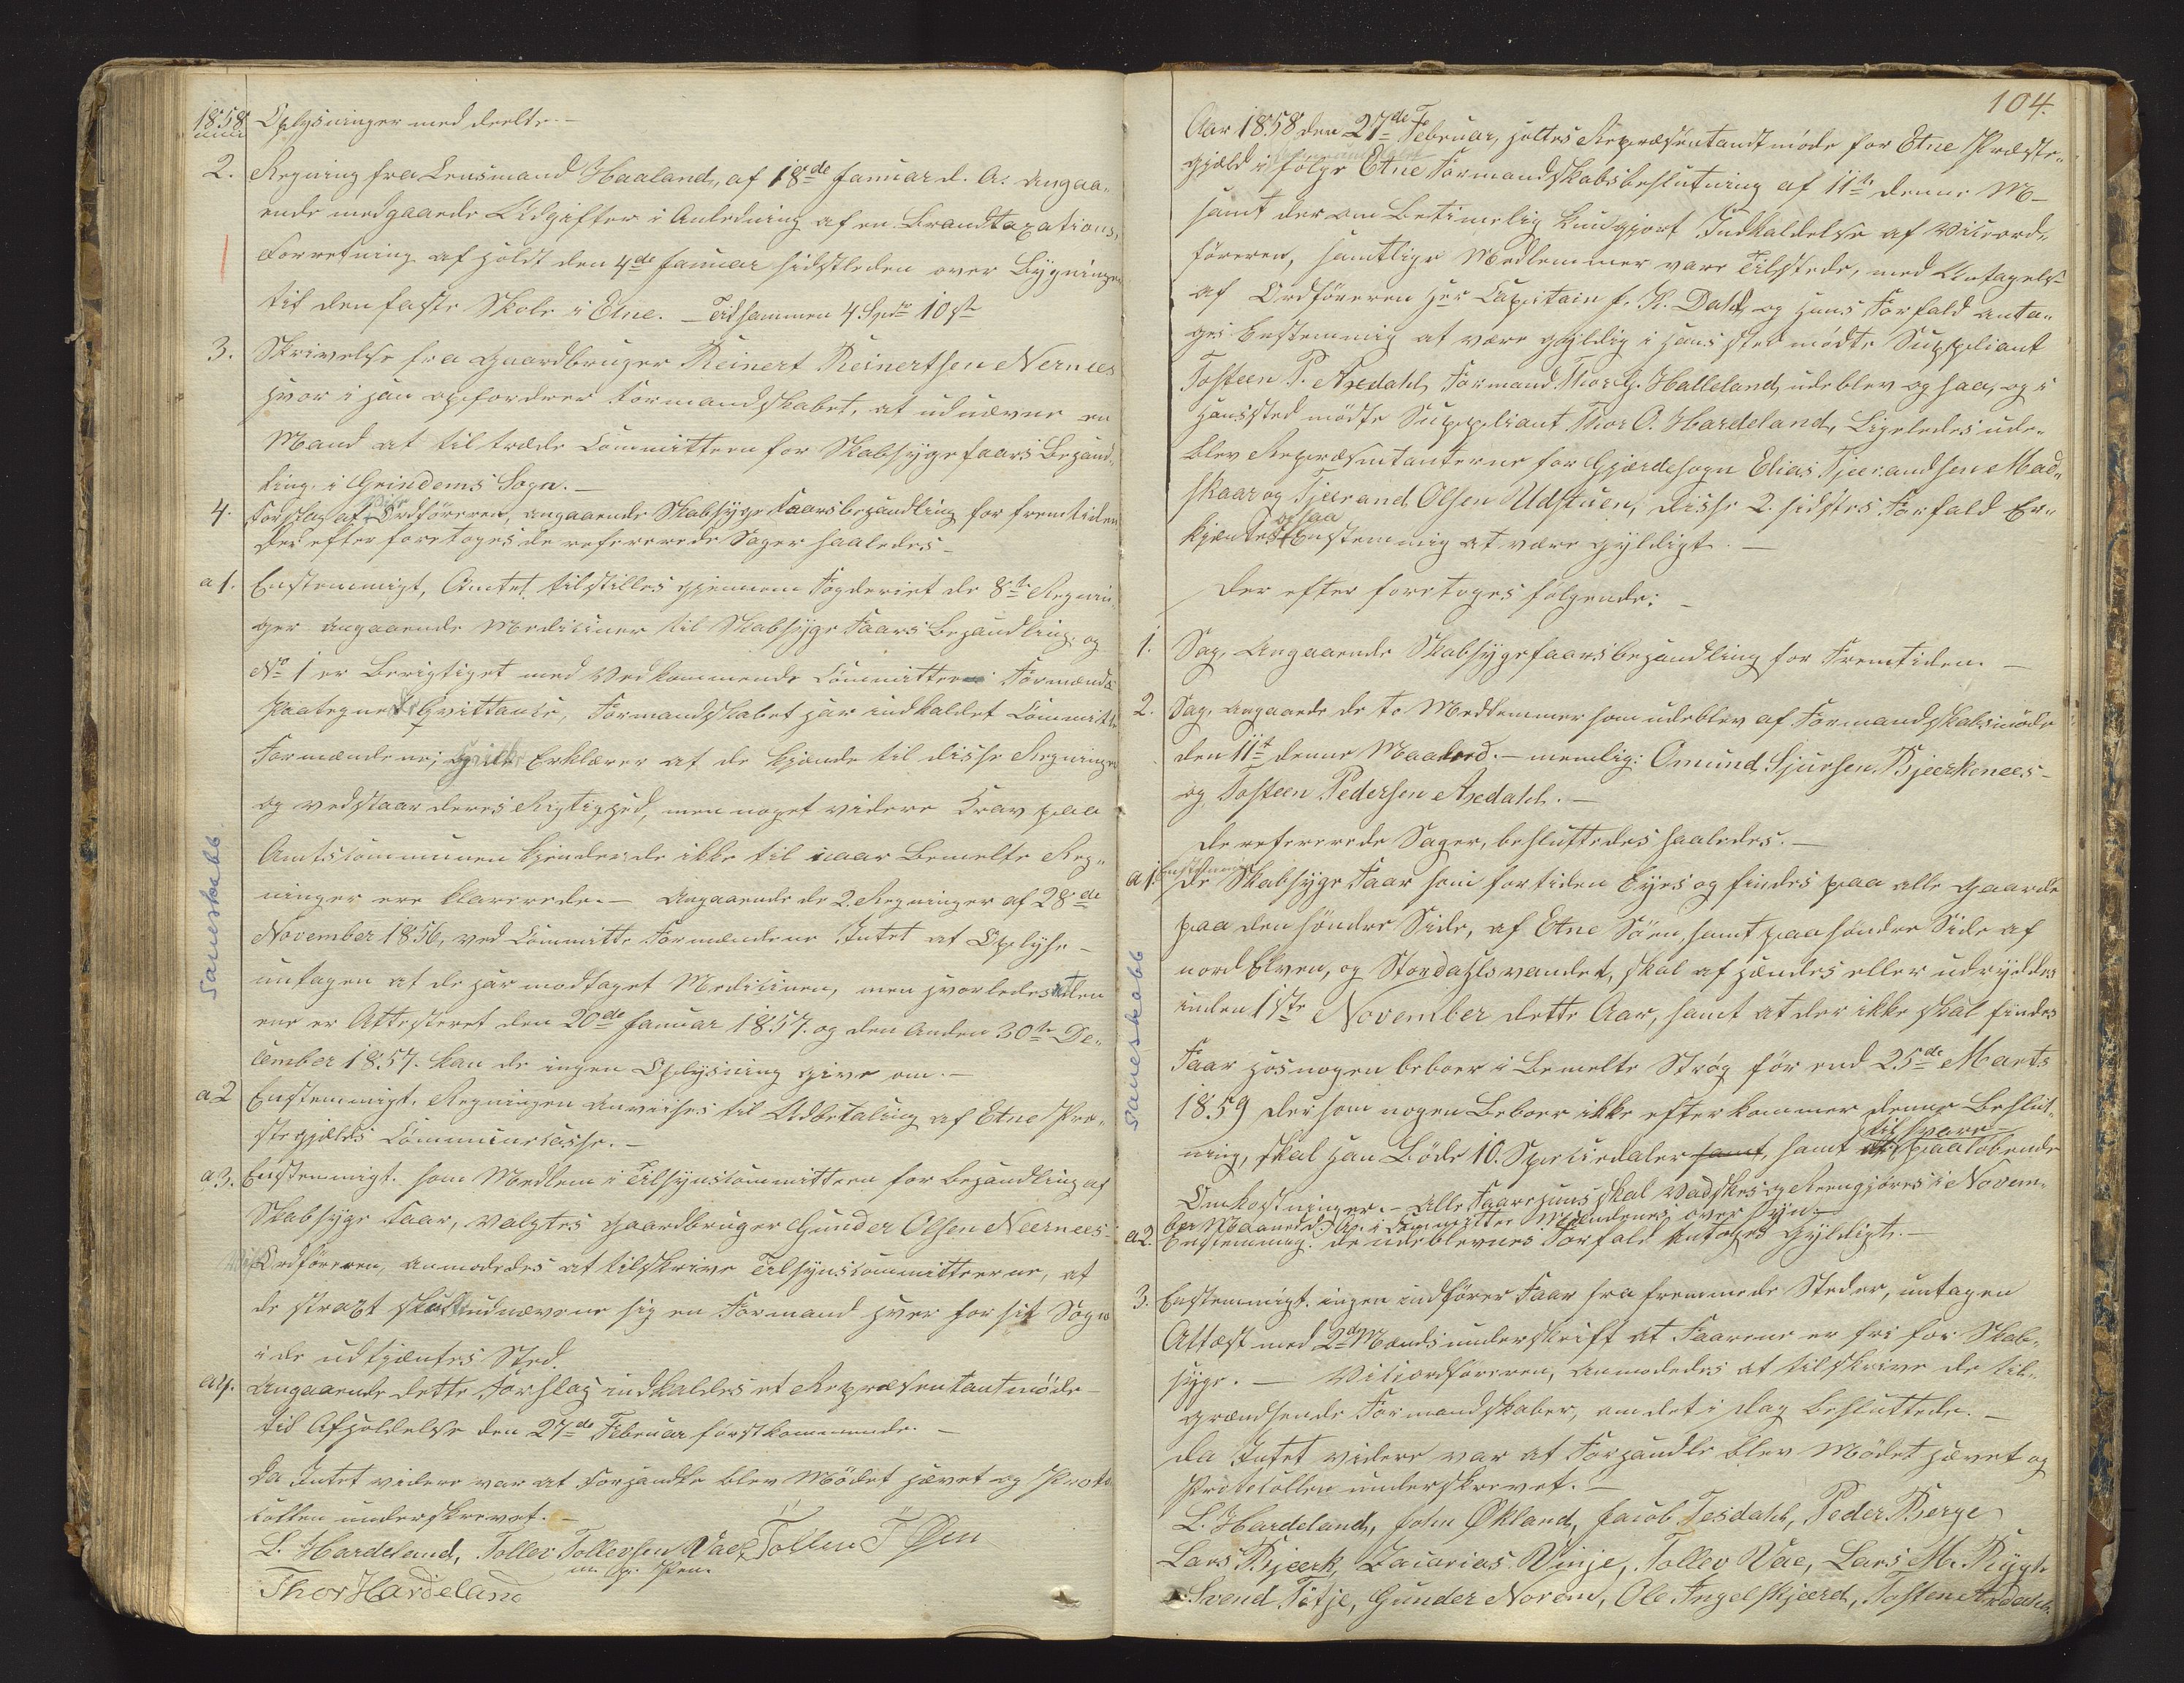 1858 Oplysninger med deelte. –
2. Regning fra Lensmand Haaland, af 18de Januar d. A. angaa-
ende medgaaede Udgifter i Anledning af en Brandtaxations,
Forretning af holdt den 4de Januar sidstleden over Bygningen
til den faste Skole i Etne. – Tilsammen 4 Spd 10 s
3. Skrivelse fra Gaardbruger Reinert Reinertsen Nernæs
hvor i han opfordrer Formandskabet, at udnævne en
Mand at tiltræde Committeen for Skabsyge faars Behand-
ling i Grindems Sogn. –
4. Forslag af Vice Ordføreren, angaaende Skabsyge Faarsbehandling for fremtiden
Der efter foretoges de refererede Sager saaledes –
a 1. Enstemmigt, Amtet tilstilles gjennem Fogderiet de 8te Regnin-
ger angaaende Mediciner til Skabsyge Faars Behandling, og
No 1 er Berigtiget med Vedkommende Committee Formænds
Paategnet Qvittance, Formandskabet har indkaldet Committe
Formændene; Erklærer at de kjænde til disse Regninger
og vedstaar deres Rigtighed, men noget videre Krav paa
Amtscommunen kjender de ikke til naar Bemelte Reg-
ninger ere klarerede. – Angaaende de 2 Regninger af 28de
November 1856, ved Committe Formændene Intet at Oplyse –
untagen at de har modtaget Medicinen, men hvorledes den
ene er Attesteret den 20de Januar 1857. og den Anden 30te De-
cember 1857. kan de ingen Oplysning give om. –
a 2 Enstemmigt. Regningen anvises til Udbetaling af Etne Præ-
stegjælds Communecasse. –
a 3. Enstemmigt. som Medlem i Tilsynscommitteen for Behandling af
Skabsyge Faar, valgtes Gaardbruger Gunder Olsen Neernees –
Vice Ordføreren, anmodedes at tilskrive Tilsynscommitteerne, at
de strax skal udnævne sig en Formand hver for sit Sogn
i de udtjentes Sted.
a 4. Angaaende dette Forslag indkaldes et Repræsentantmøde –
til Afholdelse den 27de Februar førstkommende. –
Da Intet videre var at Forhandle blev Mødet hævet og Proto-
collen underskrevet. –
L. Hardeland, Tollev Tollevsen Vae, Tollev T Øen
m. p. Pen.
Thor Hardeland
Saueskabb
104.
Aar 1858 den 27de Februar, holtes Repræsentantmøde for Etne Præste-
gjeld i følge Etne Formandskabsbeslutning af 11te denne M –
samt der om Betimelig kundgjort Indkaldelse af Viceord-
føreren, samtlige Medlemmer vare Tilstede, med Untagelse
af Ordføreren Her Capitain J. K. Dahl og hans Forfald anta-
ges Enstemmig at være gyldig i hans sted mødte Suppliant
Tosteen P. Axdahl, Formand Thor G. Halleland, udeblev og saa, og i
hanssted mødte Suppliant Thor O. Hardeland, Ligeledes ude-
blev Repræsentanterne for Gjærdesogn Elias Tjerandsen Mad-
skaar og Tjerand Olsen Udstuen, disse 2. sidstes Forfald Er-
kjentes ogsaa Enstemmig at være gyldigt. –
Der efter foretoges følgende: –
1. Sag, Angaaende Skabsygefaarsbehandling for Fremtiden. –
2. Sag, angaaede de to Medlemmer som udeblev af Formandskabsmøde
den 11te denne Maaned. – nemlig: Omund Sjursen Bjerkenees –
og Tosteen Pedersen Axdahl. –
De refererede Sager, besluttedes saaledes. –
a 1. Enstemmigt De Skabsyge Faar som fortiden Eyes og findes paa alle Gaarde
paa den søndre Side, af Etne Søen, samt paa søndre Side af
nord Elven, og Stordahlsvandet, skal afhændes eller udryddes
inden 1ste November dette Aar, samt at der ikke skal findes
Faar hos nogen beboer i Bemelte Strøg før end 25de Marts
1859 dersom nogen Beboer ikke efterkommer denne Beslut-
ning, skal han Bøde 10. Speciedaler samt, samt tilsvare paaløbende
Omkostninger. – Alle Faarehuus skal Vadskes og Reengjøres i Novem-
ber Maaned d. A. i Committee Mændenes over syn. –
a 2. Enstemmig. De udeblevnes Forfald antages Gyldigt. –
3. Enstemmigt. ingen indfører Faar fra fremmede Steder, untagen
Attest med 2de Mands underskrift at Faarene er fri for Skab-
syge. – Viceordføreren, Anmodedes at tilskrive de til-
grændsende Formandskaber, om det i Dag Besluttede. –
Da Intet videre var at Forhandle blev Mødet hævet og
Protocollen underskrevet. –
L. Hardeland, John Økland, Jacob Tesdahl, Peder Berge
Lars Bjerk, Zacarias Vinje, Tollev Vae, Lars M. Rygh
Svend Fitje, Gunder Norem, Ole Angelskjærd, Tosten Axdahl.
Saueskabb